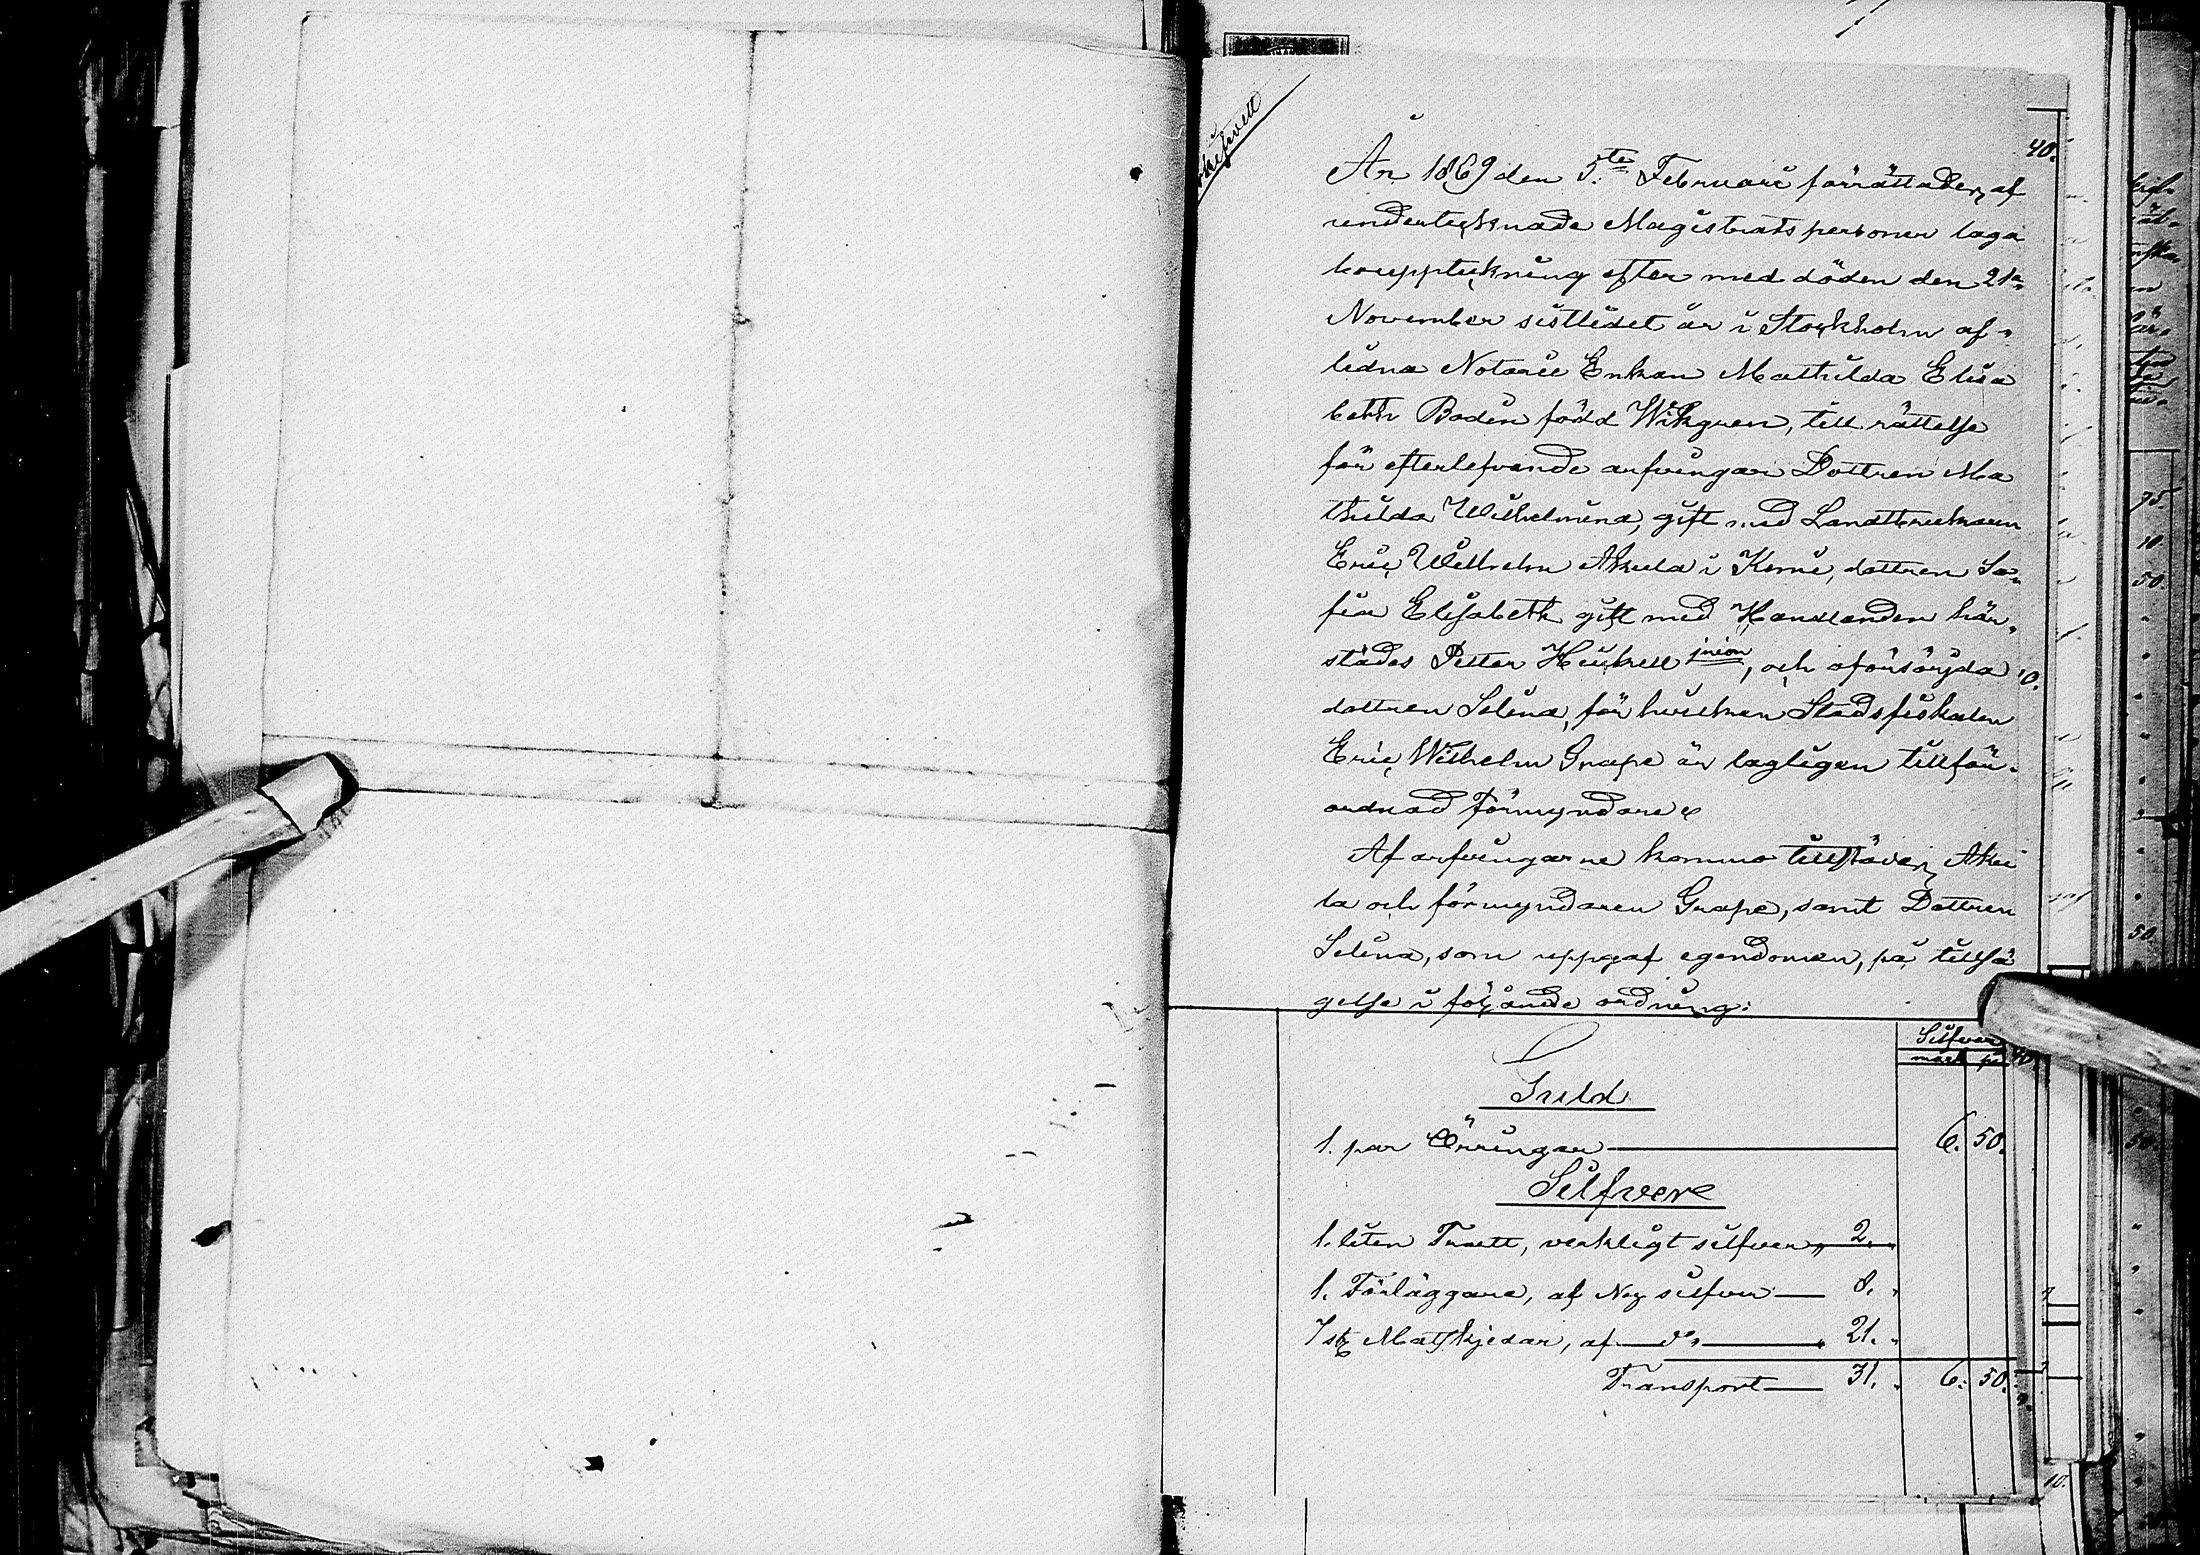 År 1869 den 5.te Februari förrättades, af
undertecknade Magistrats personer laga
bouppteckning efter med döden den 21n
November sistledet år i Stockholm af-
lidna Notarie Enkan Mathilda Elisa
beth Bodén född Wikgren, till rättelse
för efterlefvande arfvingar Dottren Ma
thilda Wilhelmina, gift med Landtbrukaren
Eric Wilhelm Akula i Kemi, dottren So-
fia Elisabeth gift med Handlanden här-
städes Petter Heickell junior, och oförsörjda
dottren Selina, för hvilken Stadsfiskalen
Eric Wilhelm Grape är lagligen tillför-
ordnad Förmyndare.
Af arfvingarne kommo tillstädes, Aku
la och förmyndaren Grape, samt Dottren
Selina, som uppgaf egendomen, på tillsä
gelse i följande ordning:
Silfver
mark pi
Guld
1. par Örringar 6. 50.
Silfver
1. liten Tratt, verkligt silfver, 2.
1. Förläggare, af Ny silfver 8.
7 st Matskjedar, af do 21.
Transport 31. 6. 50.